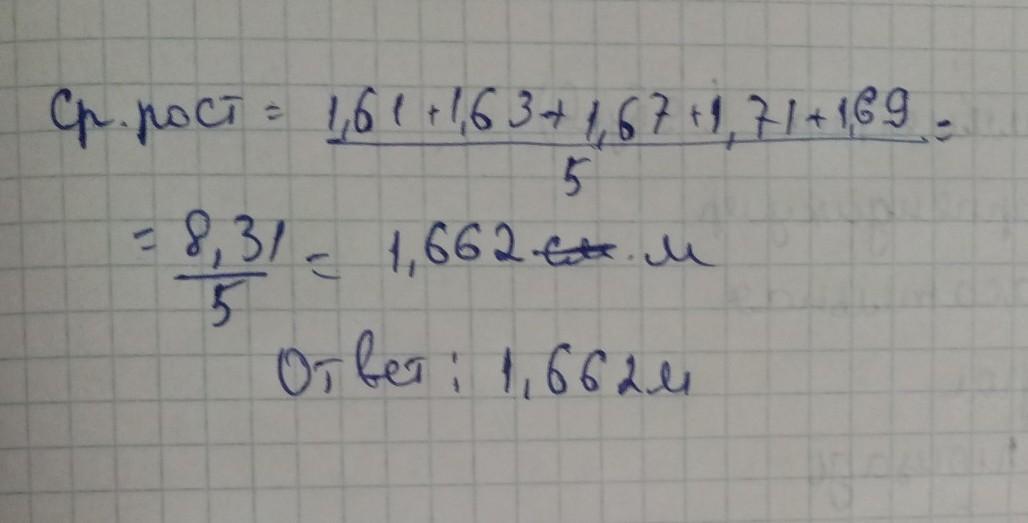 Ср. рост = 1,61 + 1,63 + 1,67 + 1,71 + 1,69 =
5
= 8,31 = 1,662 м
5
Ответ: 1,662м